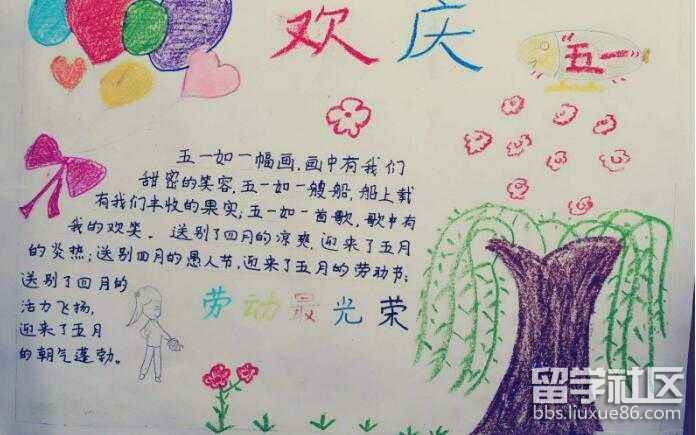 欢庆
"五一"
五一如一幅画,画中有我们
甜密的笑容,五一如一艘船,船上载
有我们丰收的果实;五一如一首歌,歌中有
我的欢笑。送别了四月的凉爽,迎来了五月
的炎热;送别四月的愚人节,迎来了五月的劳动节;
送别了四月的
活力飞扬,
迎来了五月
的朝气蓬勃。
劳动最光荣
留学社区
bbs.liuxue86.com